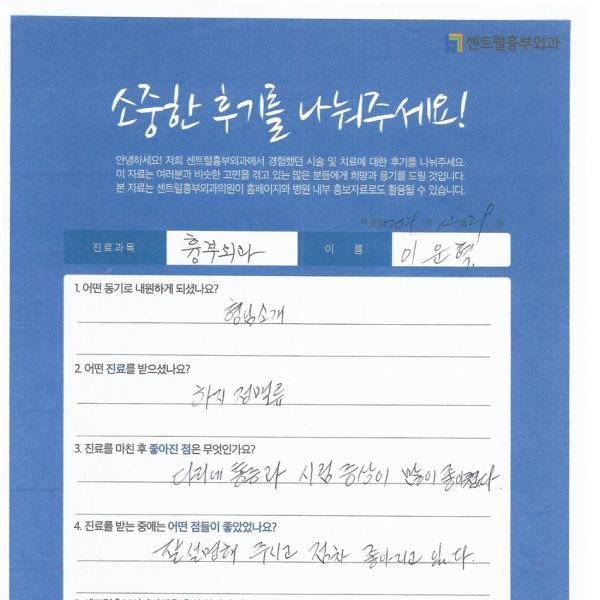 센트럴흉부외과
소중한 후기를 나눠주세요!
안녕하세요! 저희 센트럴흉부외과에서 경험했던 시술 및 치료에 대한 후기를 나눠주세요.
이 자료는 여러분과 비슷한 고민을 겪고 있는 많은 분들에게 희망과 용기를 드릴 것입니다.
본 자료는 센트럴흉부외과의원이 홈페이지와 병원 내부 홍보자료로도 활용될 수 있습니다.
작성일 2021 년 12 월 29 일
진료과목 흉부외과 이 름 이운혁
1. 어떤 동기로 내원하게 되셨나요?
형님소개
2. 어떤 진료를 받으셨나요?
하지 정맥류
3. 진료를 마친 후 좋아진 점은 무엇인가요?
다리에 통증과 시림 증상이 많이 좋아졌다.
4. 진료를 받는 중에는 어떤 점들이 좋았었나요?
잘 설명해 주시고 점차 좋아지고 있다.